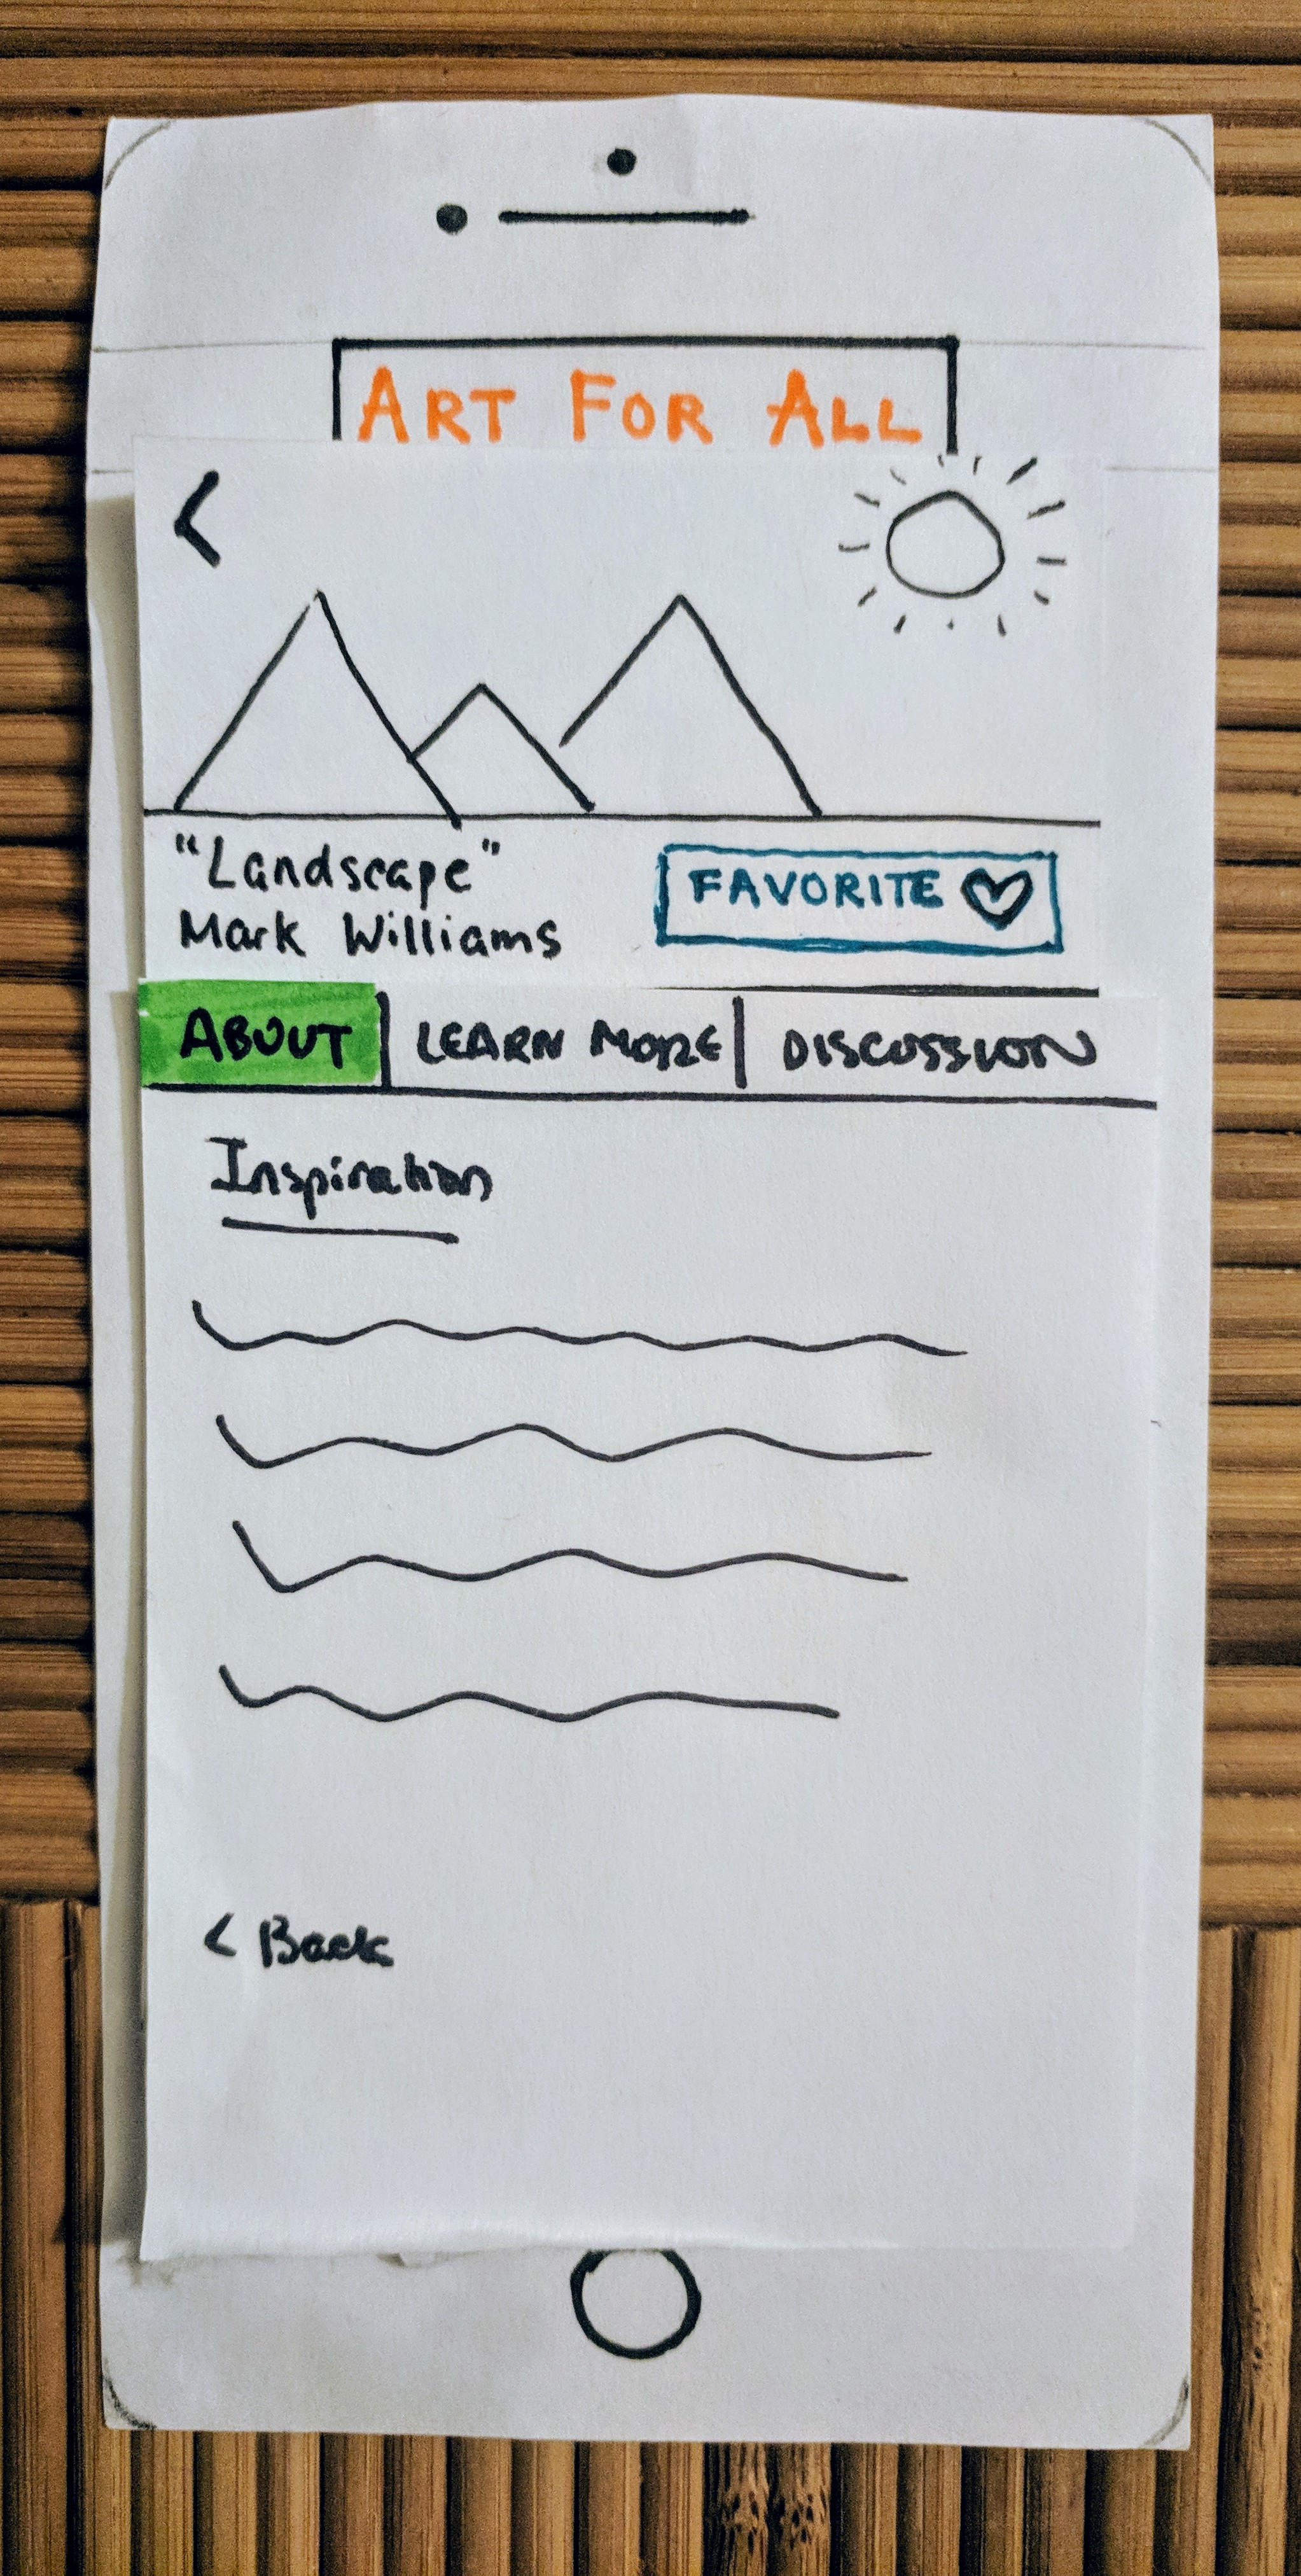 ART FOR ALL
<
"Landscape"
Mark Williams
FAVORITE ♡
ABOUT | LEARN MORE | DISCUSSION
Inspiration
< Back